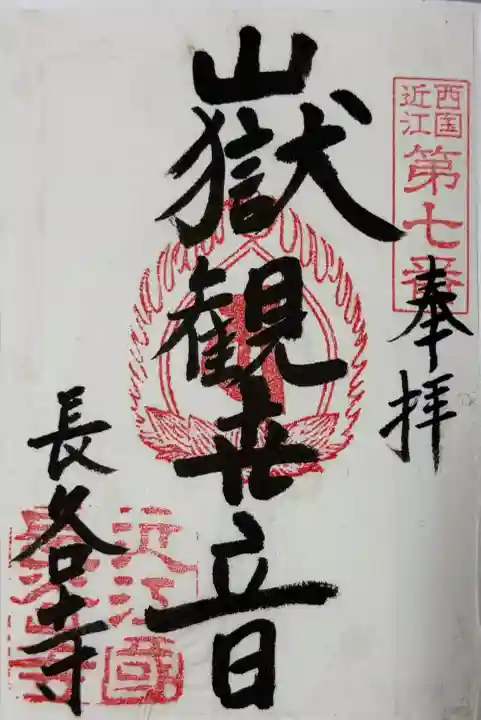 西国
近江
第七番
奉拝
嶽観世音
長谷寺
近江國